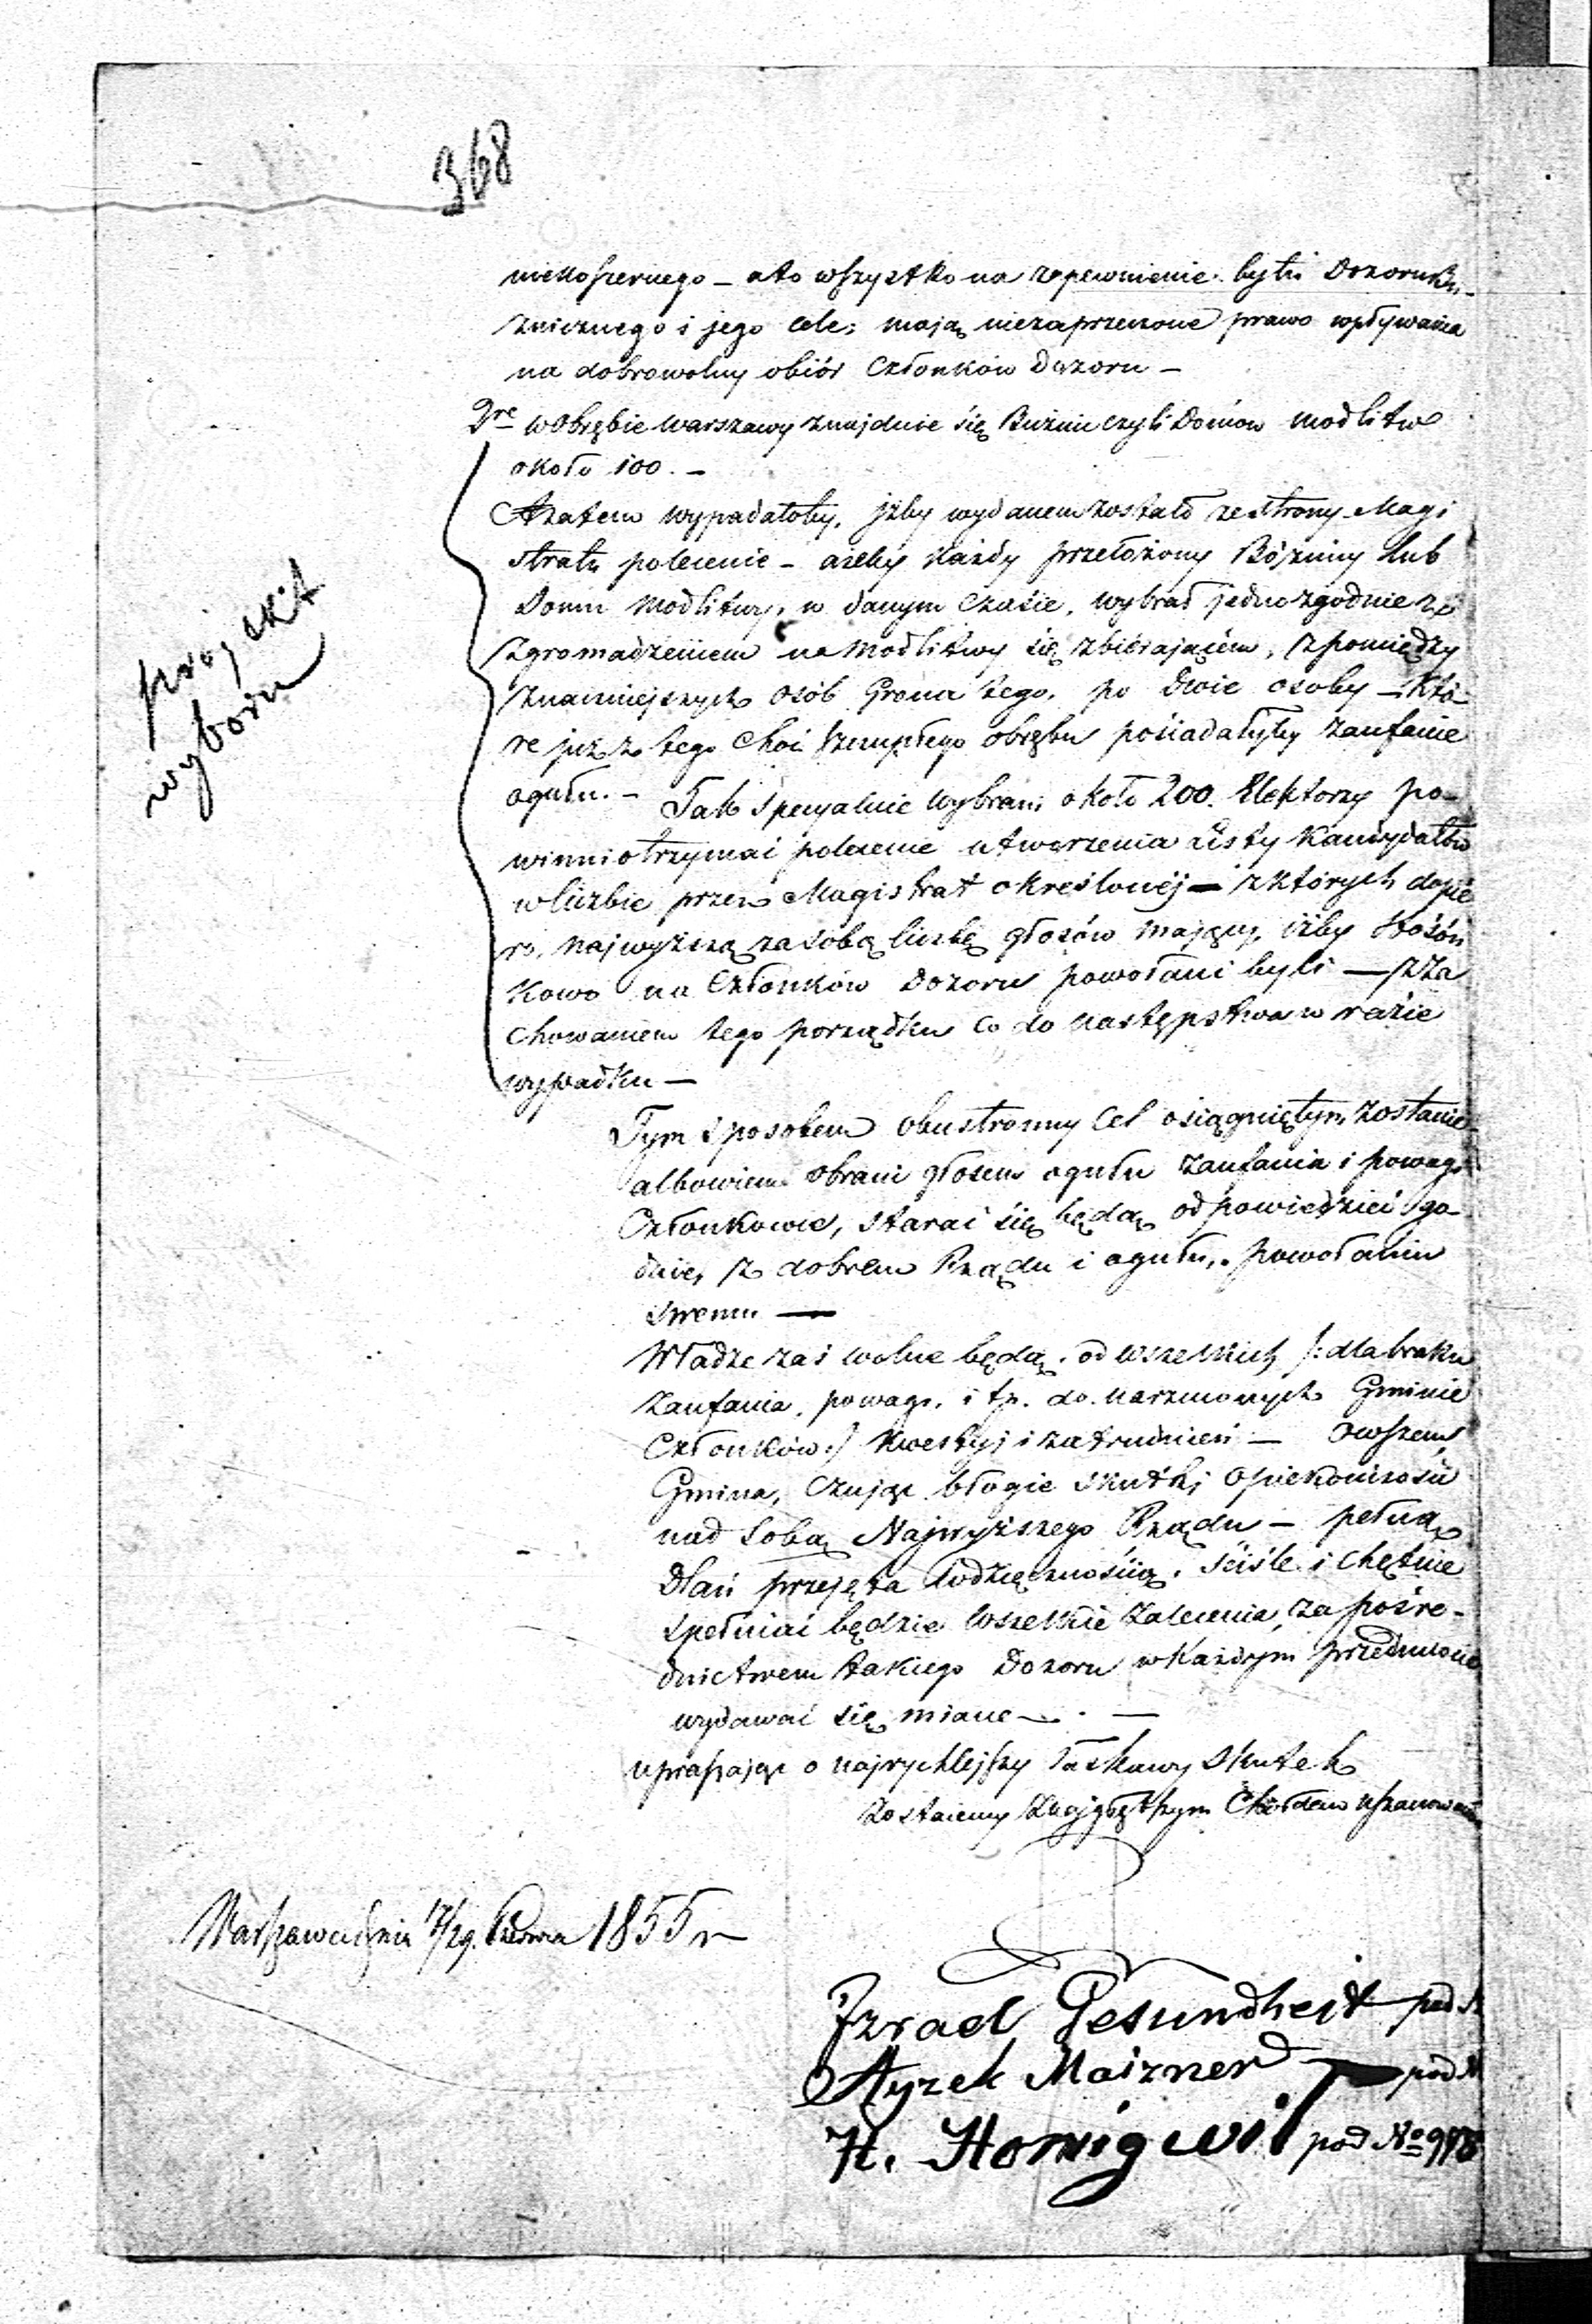 368
niekoszernego – a to wszystko na zapewnienie bytu Dozoru Bó-
żnicznego i jego cele; mają niezaprzeczone prawo wpływania
na dobrowolny obiór Członków Dozoru –
2re w Obrębie Warszawy znajduie się Bużnic czyli Domów modlitwe
około 100. –
A zatem wypadałoby, jżby wydanem zostało ze strony Magi
stratu polecenie – ażeby każdy przełożony Bóżnicy lub
Domu modlitwy, w danym czasie, wybrał jednozgodnie ze
zgromadzeniem na modlitwy się zbiérającém, z pomiędzy
znamiejszych osób Grona tego, po dwie osoby – któ-
re już z tego choć szczupłego obrębu posiadałyby zaufanie
ogułu. – Tak specyalnie wybrani około 200. Elektorzy po-
winni otrzymać polecenie utworzenia Listy Kandydatów
w liczbie przez Magistrat określonéj – z których dopie
ro, najwyższą za sobą liczbę głosów mający, iżby stosón
kowo na Członków Dozoru powołani byli – z za
chowaniem tego porządku co do następstwa w razie
wypadku –
projekt
wyboru
Tym sposobem obustronny cel osiągniętym zostanie
albowiem obrani głosem ogułu zaufania i powagi
Członkowie, starać się będą odpowiedzieć go-
dnie, z dobrem Rządu i ogułu, powołaniu
swemu –
Władze zaś wolne będą od wszelkich /: dla braku
zaufania, powagi, i tp. do narzuconych Gminie
Członków :/ kwestyj i zatrudnień – Owszem
Gmina, czując błogie skutki opiekończości
nad sobą Najwyższego Rządu – pełną
Dlań przejęta wdzięcznością, ściśle i chętnie
spełniać będzie wszelkie zalecenia, za pośre-
dnictwem takiego Dozoru w każdym przedmiocie
wydawać się miane – . –
upraszając o najrychlejszy łaskawy skutek
zostaiemy z najgłębszym Chołdem uszanowania
Warszawa dnia 17/29. Czerwca 1855 r
Izrael Gesundheit pod N
Ayzek Maizner pod N
H. Honigwil pod No